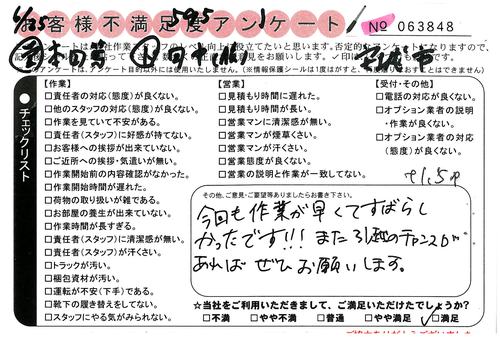 お客様不満足度アンケート
№ 063848
【作業】
□責任者の対応(態度)が良くない。
□他のスタッフの対応(態度)が良くない。
□作業を見ていて不安がある。
□責任者(スタッフ)に好感が持てない。
□お客様への挨拶が出来ていない。
□ご近所への挨拶・気遣いが無い。
□作業開始前の内容確認がなかった。
□作業開始時間が遅れた。
□荷物の取り扱いが雑である。
□お部屋の養生が出来ていない。
□作業時間が長すぎる。
□責任者(スタッフ)に清潔感が無い。
□責任者(スタッフ)が汗くさい。
□トラックが汚い。
□梱包資材が汚い。
□運転が不安(下手)である。
□靴下の履き替えをしてない。
□スタッフにやる気がみられない。
【営業】
□見積もり時間に遅れた。
□見積もり時間が長い。
□営業マンに清潔感が無い。
□営業マンが煙草くさい。
□営業マンが汗くさい。
□営業態度が良くない。
□営業の説明と作業が一致してない。
【受付・その他】
□電話の対応が良くない。
□オプション業者の説明
・作業が良くない。
□オプション業者の対応
(態度)が良くない。
●チェックリスト
その他、ご意見・ご要望等ありましたらお書き下さい。
今回も作業が早くてすばらし
かったです!!! また引越のチャンスが
あればぜひお願いします。
☆当社をご利用いただきまして、ご満足いただけたでしょうか?
□不満 □やや不満 □普通 □やや満足 ☑満足